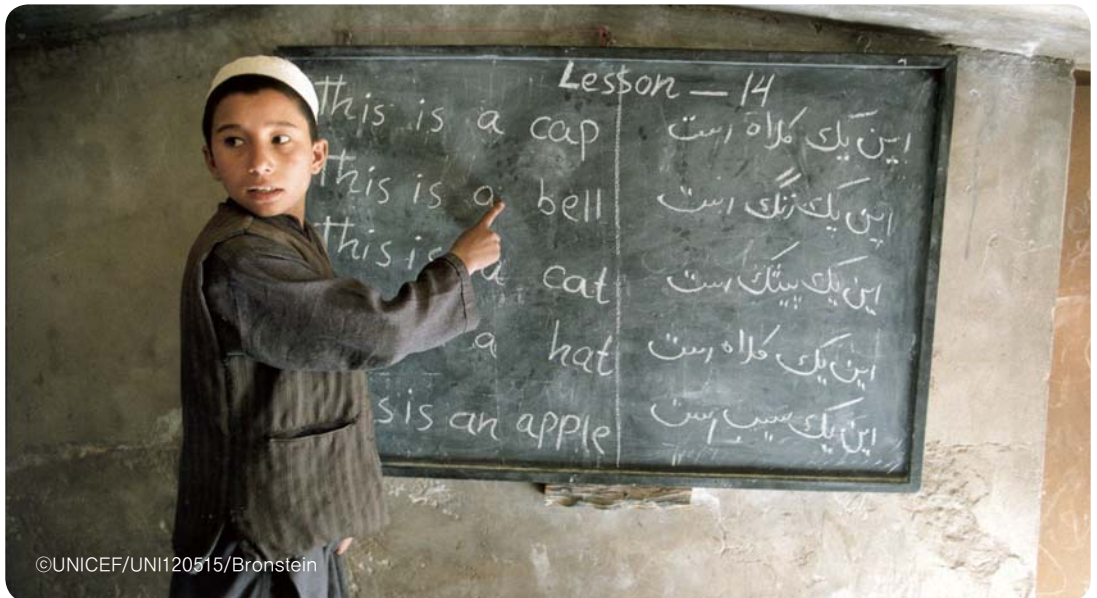 Lesson — 14
This is a cap
This is a bell
This is a cat
a hat
s is an apple
این یک کلاه است
این یک زنگ است
این یک پیشک است
این یک کلاه است
این یک سیب است
©UNICEF/UNI120515/Bronstein